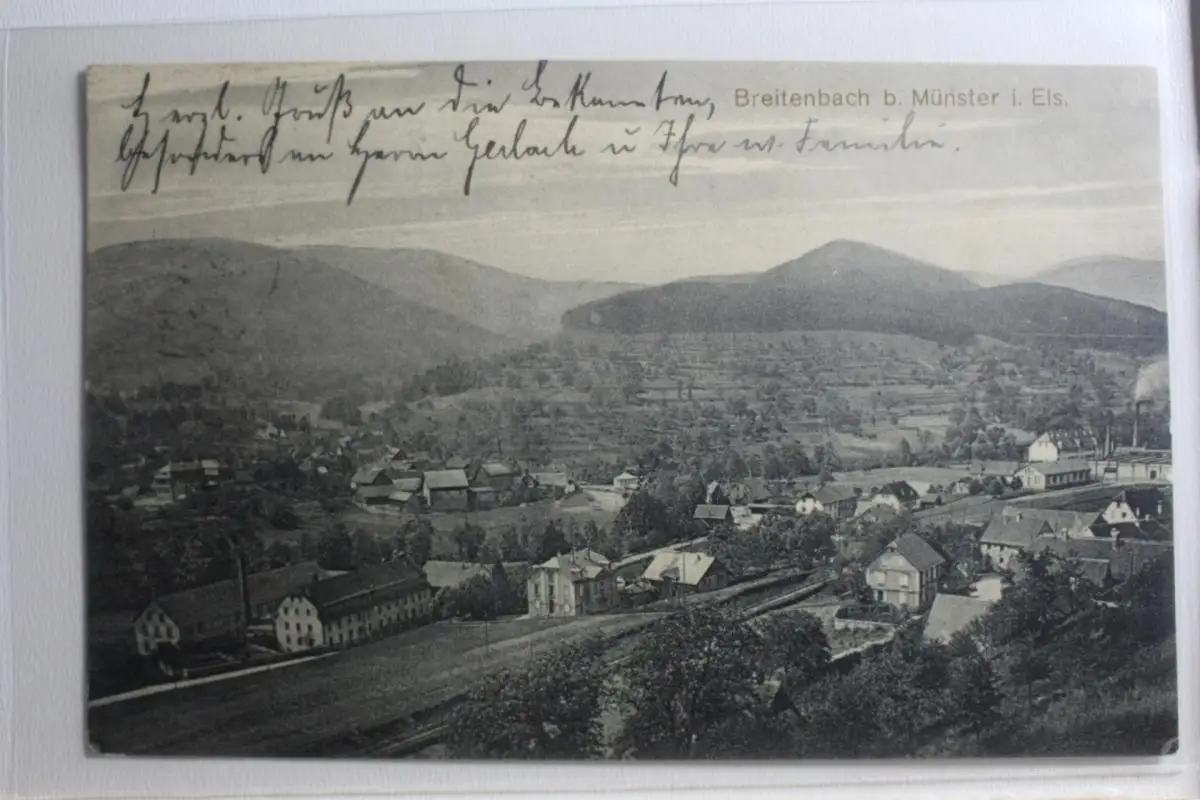 Herzl. Gruß an die Bekannten,
Breitenbach b. Münster i. Els.
besonders an Herrn Gerlach u Ihre w. Familie.